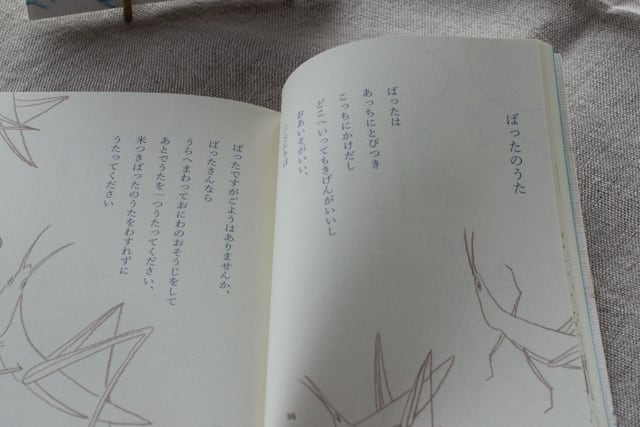 ばったのうた
ばったは
あっちにとびつき
こっちにかけだし
どこへいってもきげんがいいし
おあいそがいい、
ばったですがごようはありませんか、
ばったさんなら
うらへまわっておにわのおそうじをして
あとでうたを一つうたってください、
米つきばったのうたをわすれずに
うたってください
36